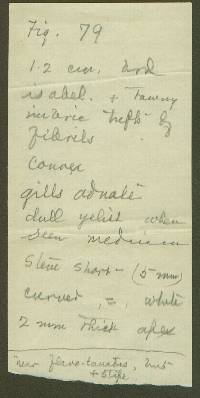 Fig. 79
1.2 cm. broad
isabel. + Tawny
tufts by
fibrils
convex
gills adnate
dull yelish when
seen medium
stem short - (5 mm)
curved, =, white
2 mm thick apex
near flavo-
+ stipe